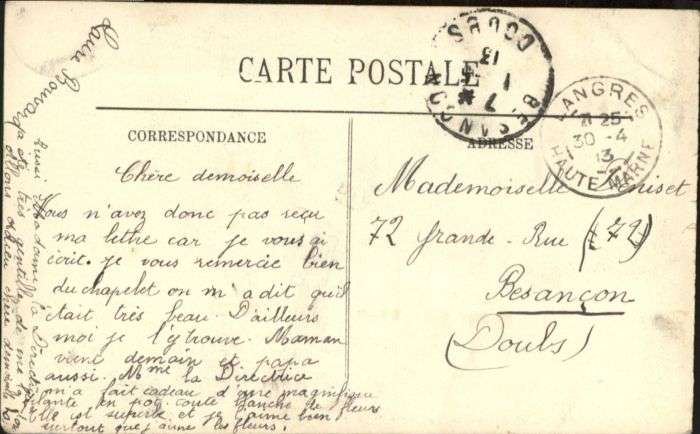 CARTE POSTALE
CORRESPONDANCE
ADRESSE
DOUBS
BESANCON
7 *
1 - 5
13
LANGRES
11 25
30 - 4
13
HAUTE-MARNE
Chère demoiselle
Vous n'avez donc pas reçu
ma lettre car je vous ai
écrit. je vous remercie bien
du chapelet on m'a dit qu'il
était très beau. D'ailleurs
moi je l'y trouve. Maman
vient demain et papa
aussi. Mme la Directrice
m'a fait cadeau d'une magnifique
plante en pot toute blanche de fleurs
Elle est superbe et je l'aime bien
surtout que j'aime les fleurs.
Aussi Madame la Directrice
a été très gentille de me
Allons adieu chère demoiselle
Laure
Mademoiselle
72 Grande-Rue (72)
Besançon
(Doubs)